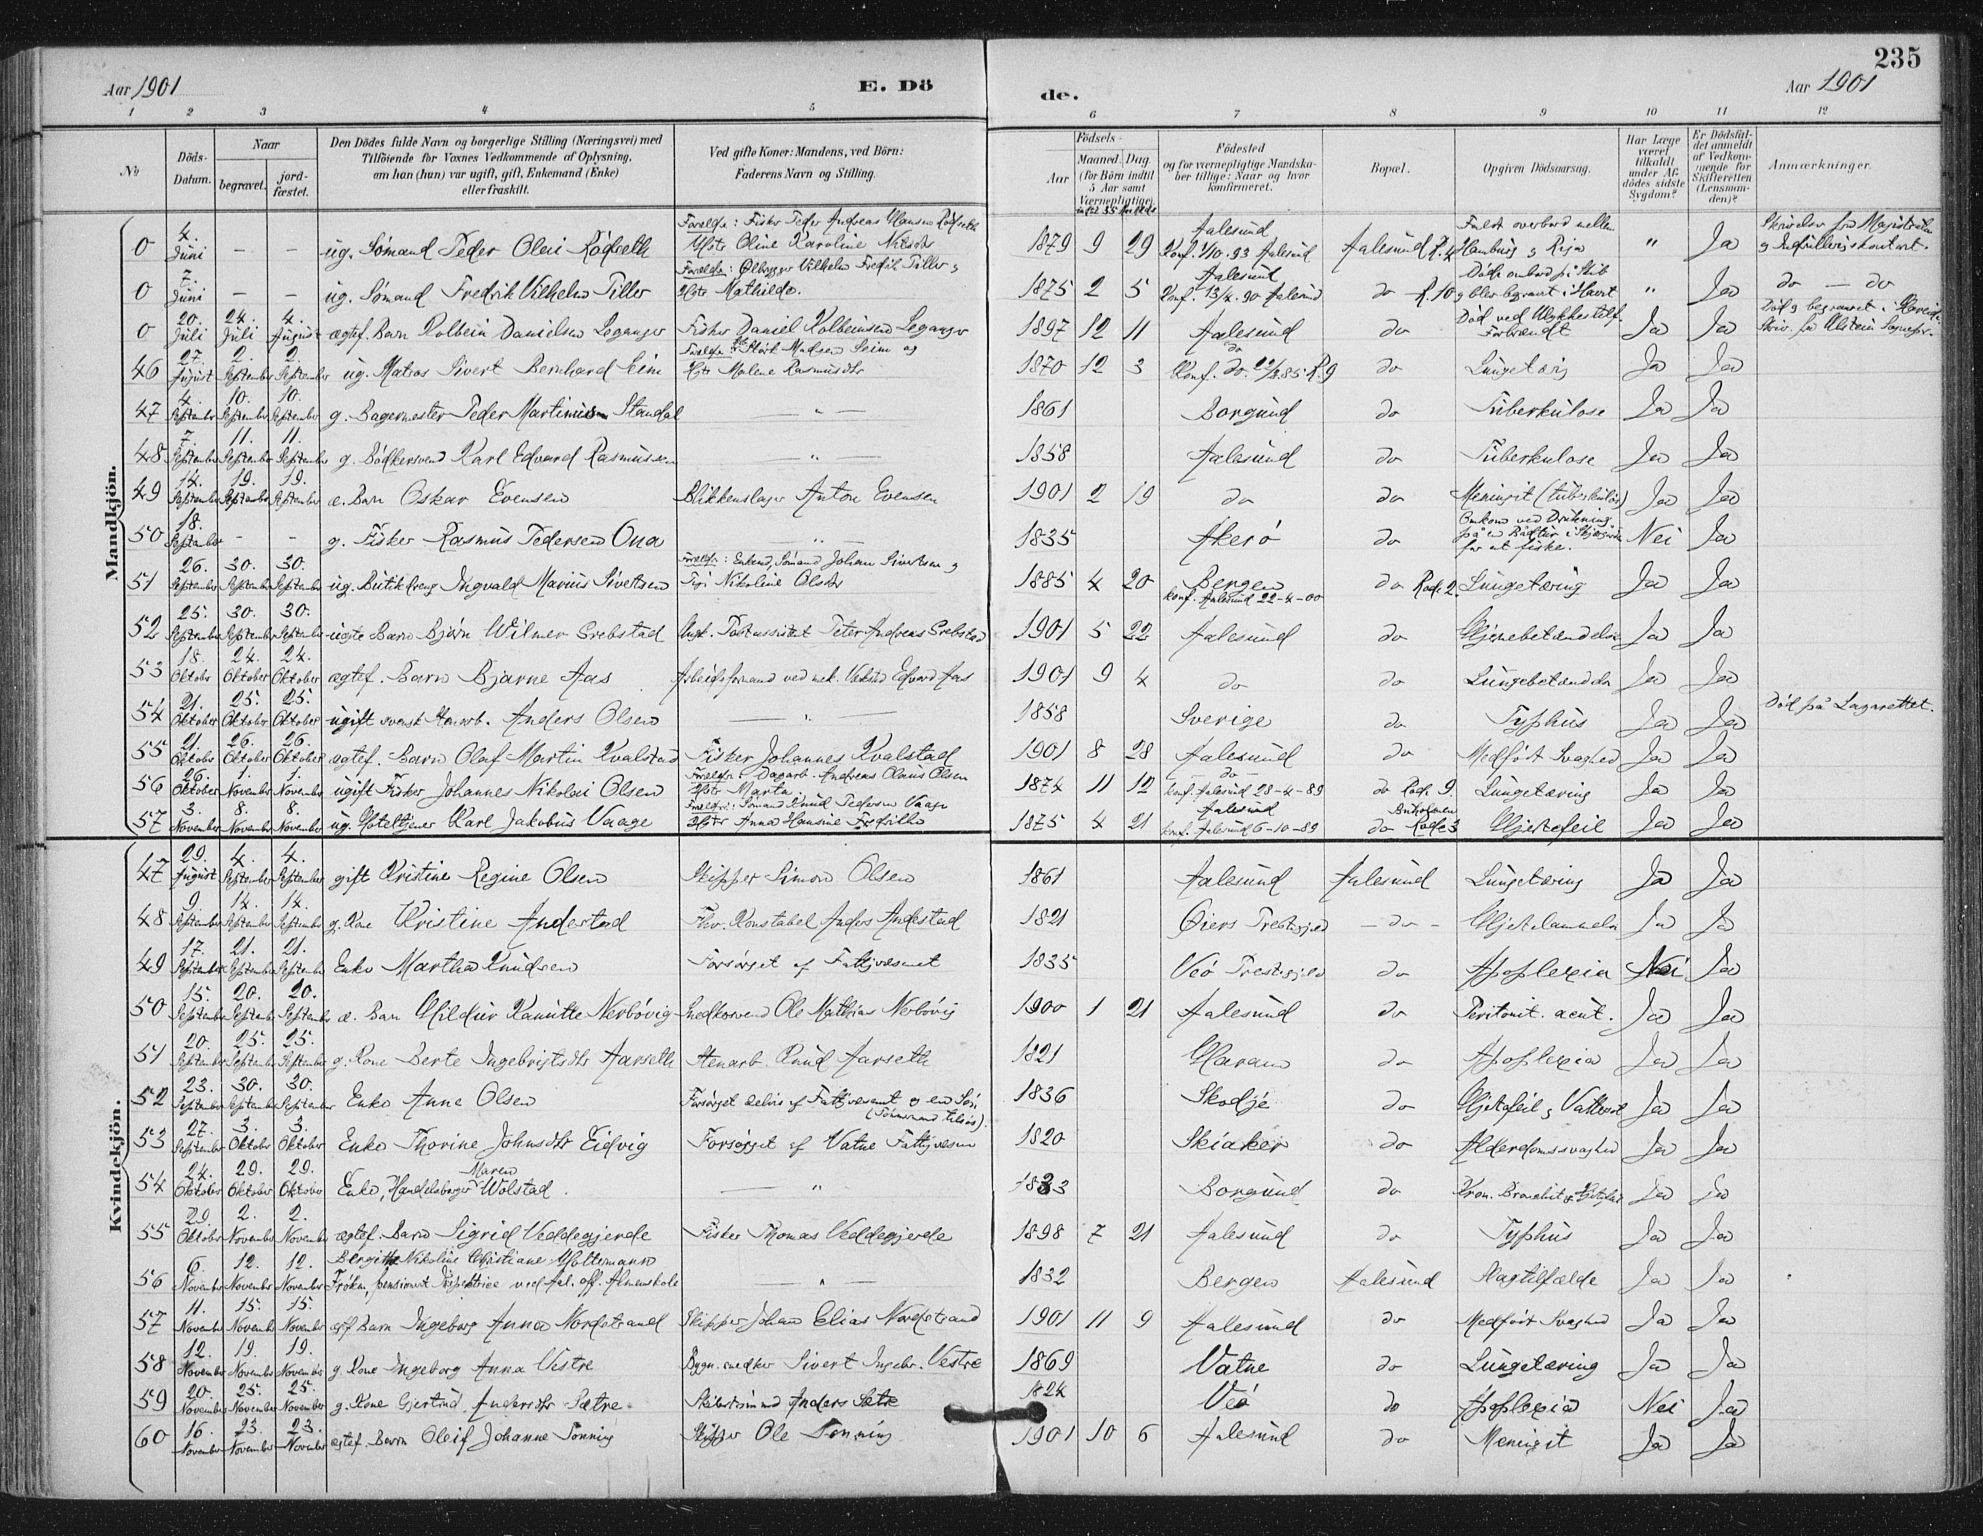 235
Aar 1901
E. Döde.
Aar 1901
1 2 3 4 5 6 7 8 9 10 11 12
No
Döds-Datum.
Naar
begravet.
jordfæstet.
Den Dödes fulde Navn og borgerlige Stilling (Næringsvei) med
Tilföiende for Voxnes Vedkommende af Oplysning,
om han (hun) var ugift, gift, Enkemand (Enke)
eller fraskilt.
Ved gifte Koner: Mandens, ved Börn:
Faderens Navn og Stilling.
Födsels-
Aar
Maaned. Dag.
(for Börn indtil
5 Aar samt
Værnepligtige)
Födested
og for værnepligtige Mandska-
ber tillige: Naar og hvor
konfirmeret.
Bopæl.
Opgiven Dödsaarsag.
Har Læge
været
tilkaldt
under Af-
dödes sidste
Sygdom?
Er Dödsfal-
det anmeldt
af Vedkom-
mende for
Skifteretten
(Lensman-
den)?
Anmærkninger.
Mandkjön.
0 4. Juni — — ug. Sömand Peder Olai Rödseth Forældre: Fisker Peder Andreas Hansen Rödseth Hstr Oline Karoline 1879 9 29 Aalesund Konf. 1/10.93 Aalesund Aalesund R.4 Faldt overbord mellem Hamburg og Riga " Ja
0 7. Juni — — ug. Sömand Fredrik Vilhelm Tiller Forældre: Vilhelm Fredrik Tiller og Hstr Mathilde. 1875 2 5 Aalesund do R.10 Döde ombord på Skib og blev begravet i Havet " Ja do — do
0 20. Juli 24. Juli 4. August ægtef. Barn Kolbein Danielsen Leganger Fisker Daniel Kolbeinsen Leganger 1897 12 11 Aalesund do Död ved Ulykkestilf. Forbrændt Ja Ja
46 27. August 2. September 2. September ug. Matros Sivert Bernhard Seim Madsen Seim og Hstr Malene Rasmusdtr 1870 12 3 do do Lungetæring Ja Ja
47 4. September 10. September 10. September g. Bagermester Peder Martinus Standal — " — 1861 Borgund do Tuberkulose Ja Ja
48 7. September 11. September 11. September g. Bödkersvend Karl Edvard Rasmussen — " — 1858 Aalesund do Tuberkulose Ja Ja
49 14. September 19. September 19. September æ. Barn Oskar Evensen Blikkenslager Anton Evensen 1901 2 19 do do Meningit (tuberkulös) Ja Ja
50 18. September - - g. Fisker Rasmus Pedersen Ona — " — 1835 Akerö do Omkom ved Drukning for at fiske. Nei Ja
51 26. September 30. September 30. September ug. Butikdreng Ingvald Marius Sivertsen Forældre: Enkemd, Sömand Johan Sivertsen og Nikoline Olsdtr 1885 4 20 Bergen konf. Aalesund 22-4-00 do Rode 2. Lungetæring Ja Ja
52 25. September 30. September 30. September uægte Barn Björn Wilmer Grebstad Ungk. Peter Andreas Grebstad 1901 5 22 Aalesund do Hjernebetændelse Ja Ja
53 18. Oktober 24. Oktober 24. Oktober ægtef. Barn Bjarne Aas Arbeidsformand ved mek. Verksted Edvard Aas 1901 9 4 do do Lungebetændelse Ja Ja
54 21. Oktober 25. Oktober 25. Oktober ugift svensk Stenarb. Anders Olsen — " — 1858 Sverige do Typhus Ja Ja död på Lazarettet.
55 21. Oktober 26. Oktober 26. Oktober ægtef. Barn Olaf Martin Kvalstad Fisker Johannes Kvalstad 1901 8 28 Aalesund do Medfödt Svaghed Ja Ja
56 26. Oktober 1. November 1. November ugift Fisker Johannes Nikolai Olsen Forældre: Dagarb. Andreas Olaus Olsen Hstr Marta 1874 11 12 do konf. Aalesund 28-4-89 do Rode 9. Lungetæring Ja Ja
57 3. November 8. November 8. November ug. Hoteltjener Karl Jakobus Vaage Forældre: Sömand Knud Pedersen Vaage Hstr Anna Hansine 1875 4 21 Aalesund konf. Aalesund 6-10-89 do Rode 3 Hjertefeil Ja Ja
Kvindekjön.
47 29. August 4. September 4. September gift Kristine Regine Olsen Skipper Simon Olsen 1861 Aalesund Aalesund Lungetæring Ja Ja
48 9. September 14. September 14. September g. Kone Kristine Anderstad Fhv. Konstabel Anders Anderstad 1821 Öiers Prestegjeld - do - Hjertelammelse Ja Ja
49 17. September 21. September 21. September Enke Martha Knudsen Forsörget af Fattigvæsenet 1835 Veö Prestegjeld do Apoplexia Nei Ja
50 15. September 20. September 20. September æ. Barn Hildur Kamitte Nerbövig Snedkersvend Ole Mathias Nerbövig 1900 1 21 Aalesund do Peritonit. acut. Ja Ja
51 20. September 25. September 25. September g. Kone Berte Ingebrigtsdtr Aarseth Stenarb. Knud Aarseth 1821 Haram do Apoplexia Ja Ja
52 23. September 30. September 30. September Enke Anne Olsen Forsörget delvis af Fattigvæsenet og en Sön (Sömand tilsös) 1836 Skodje do Hjertefeil & Vattersot Ja Ja
53 27. September 3. Oktober 3. Oktober Enke Thorine Johnsdtr Eidvig Forsörget af Vatne Fattigvæsen 1820 Skiaker do Alderdomssvaghed Ja Ja
54 24. Oktober 29. Oktober 29. Oktober Enke, Handelsborger Maren Wolstad — " — 1833 Borgund do Kron. Bronchit & Hjertefeil Ja Ja
55 29. Oktober 2. November 2. November ægtef. Barn Sigrid Veddegjerde Fisker Thomas Veddegjerde 1898 7 21 Aalesund do Typhus Ja Ja
56 6. November 12. November 12. November Bergitte Nikoline Christiane Holtermann Fröken, pensioneret Inspektrice ved Aal. off. Almenskole — " — 1832 Bergen Aalesund Slagtilfælde Ja Ja
57 11. November 15. November 15. November ægt Barn Ingeborg Anna Nordstrand Skipper Johan Elias Nordstrand 1901 11 9 Aalesund do Medfödt Svaghed Ja Ja
58 12. November 19. November 19. November g. Kone Ingeborg Anna Vestre Bygn. snedker Sivert Ingebr. Vestre 1869 Vatne do Lungetæring Ja Ja
59 20. November 25. November 25. November g. Kone Gjertrud Andersdtr Sætre Anders Sætre 1824 Veö do Apoplexia Nei Ja
60 16. November 23. November 23. November ægtef. Barn Oleif Johanne Tonning Skipper Ole Tonning 1901 10 6 Aalesund do Meningit Ja Ja